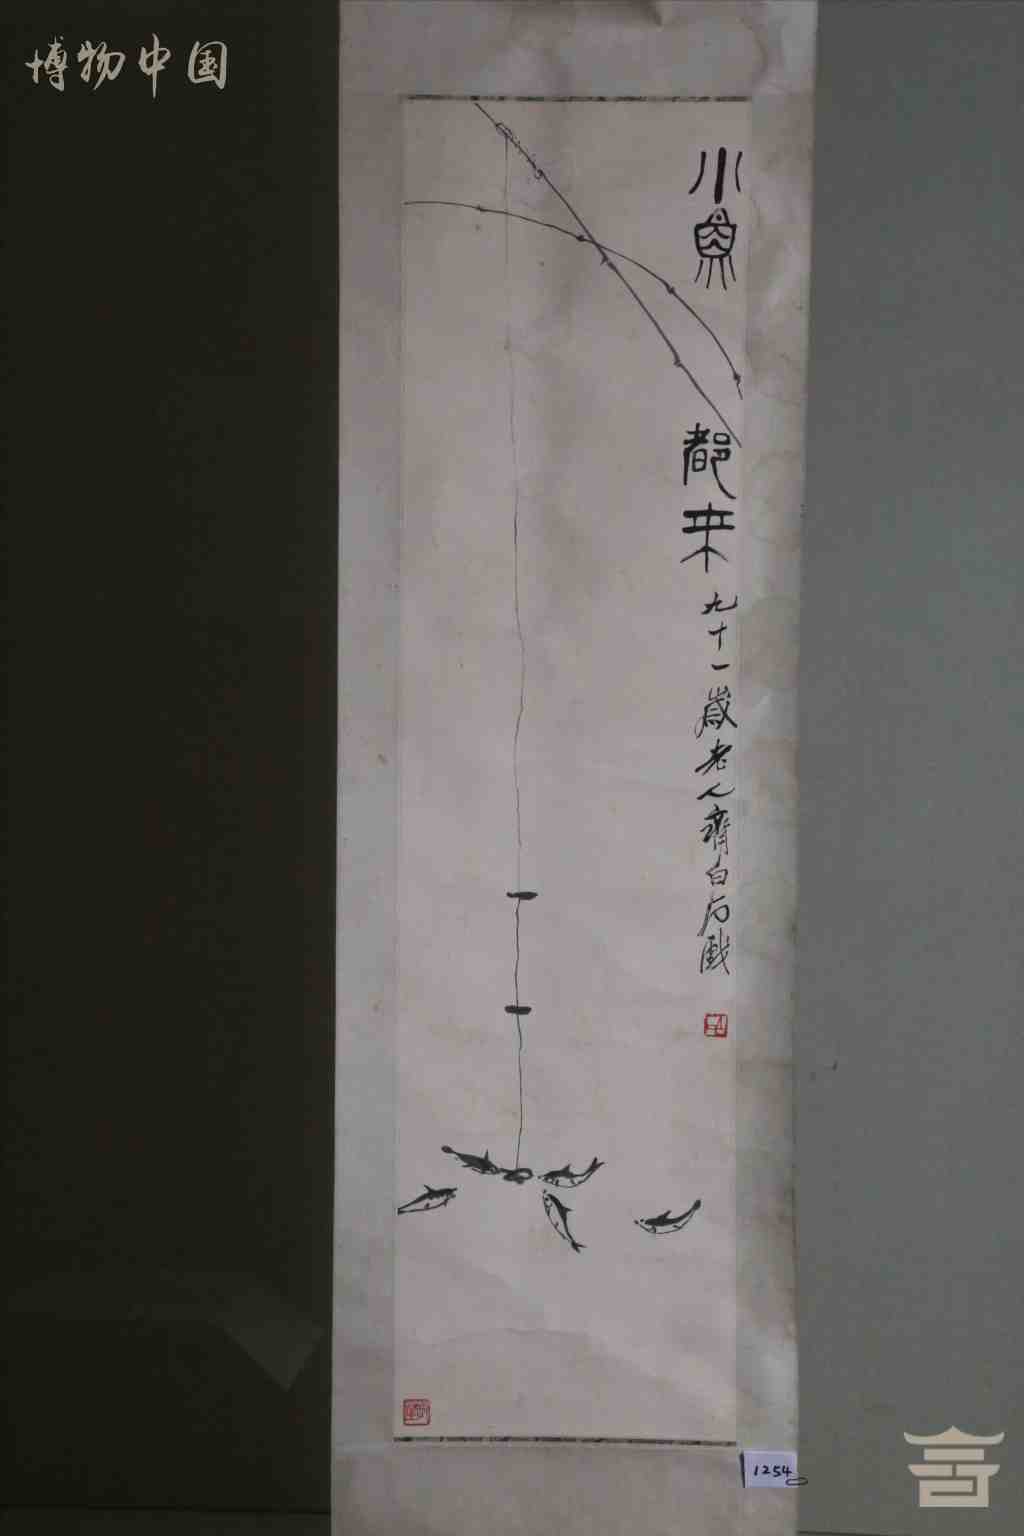 博物中国
小魚都来
九十一歲老人齊白石戲
1254